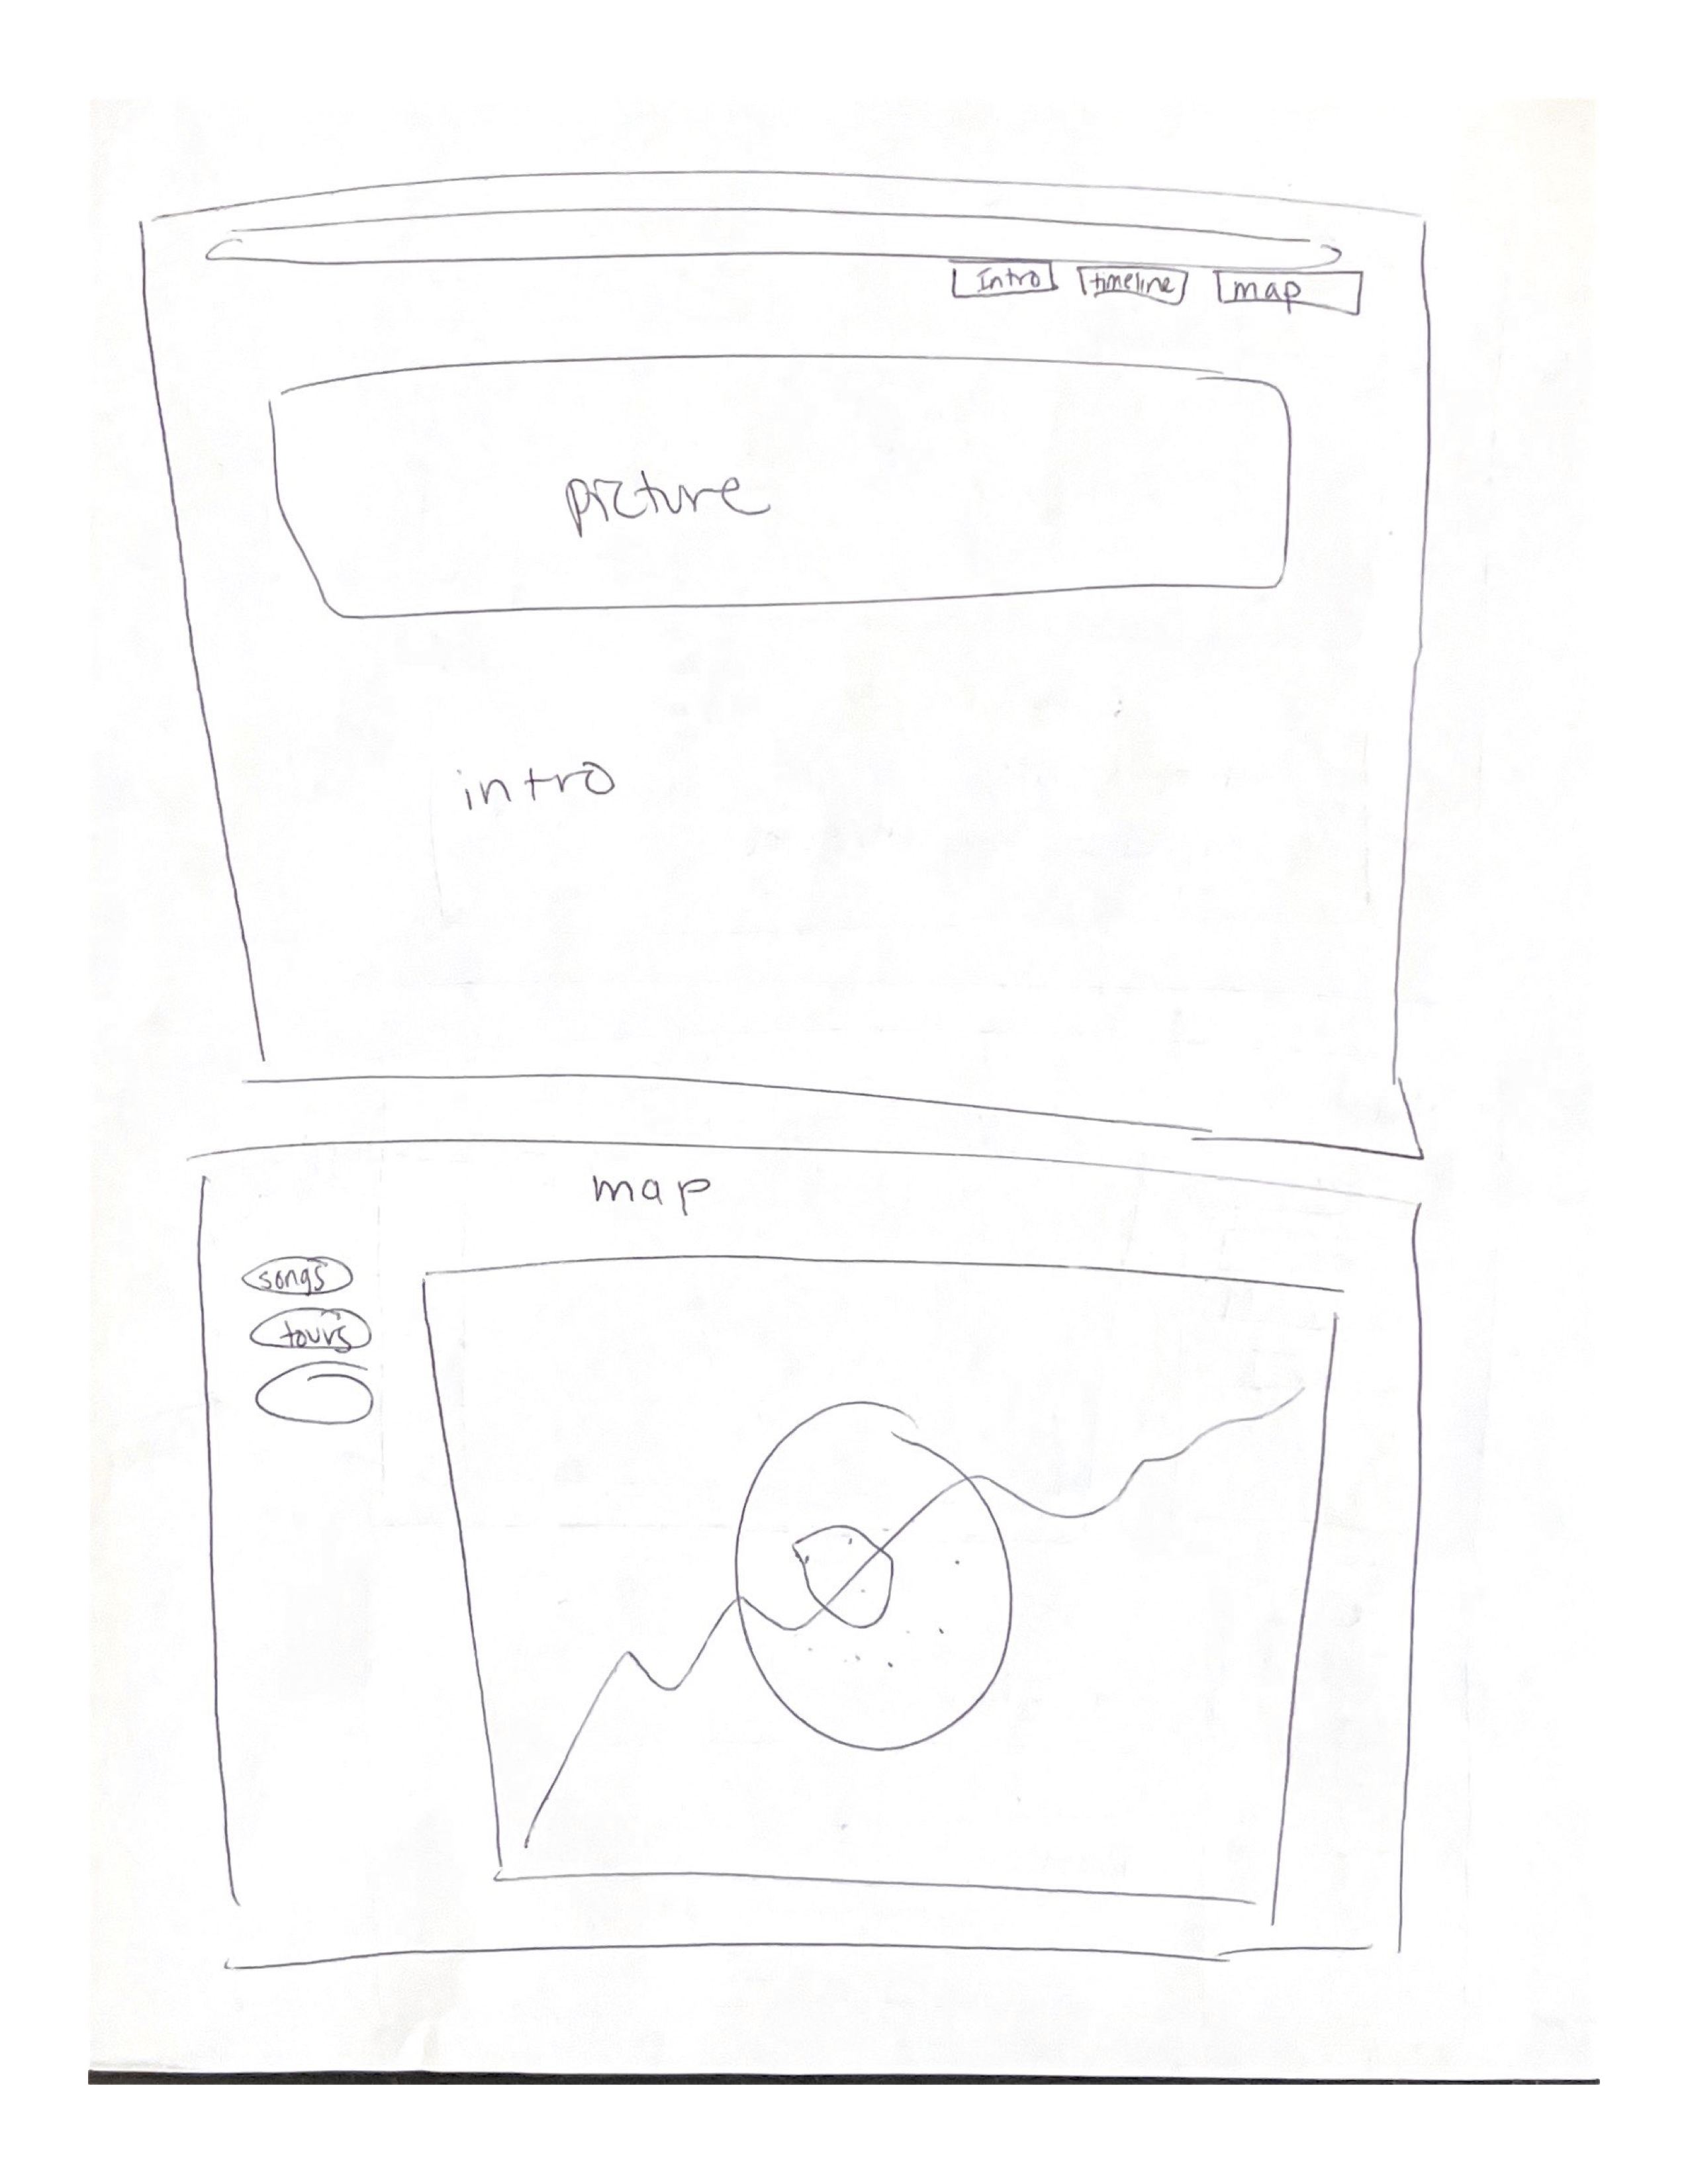 Intro timeline map
picture
intro
map
songs
tours